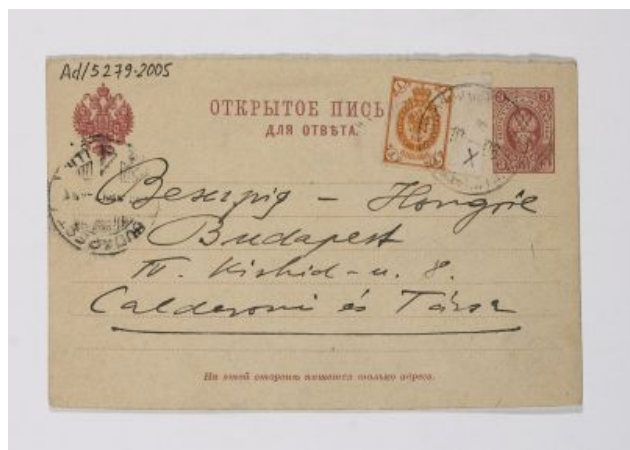 Ad/5279-2005
ОТКРЫТОЕ ПИСЬ
ДЛЯ ОТВѢТА.
1
3
X
BUDAPEST
Hongrie
Budapest
IV. Kishid-u. 8.
Calderoni és Társa
На этой сторонѣ пишется только адресъ.